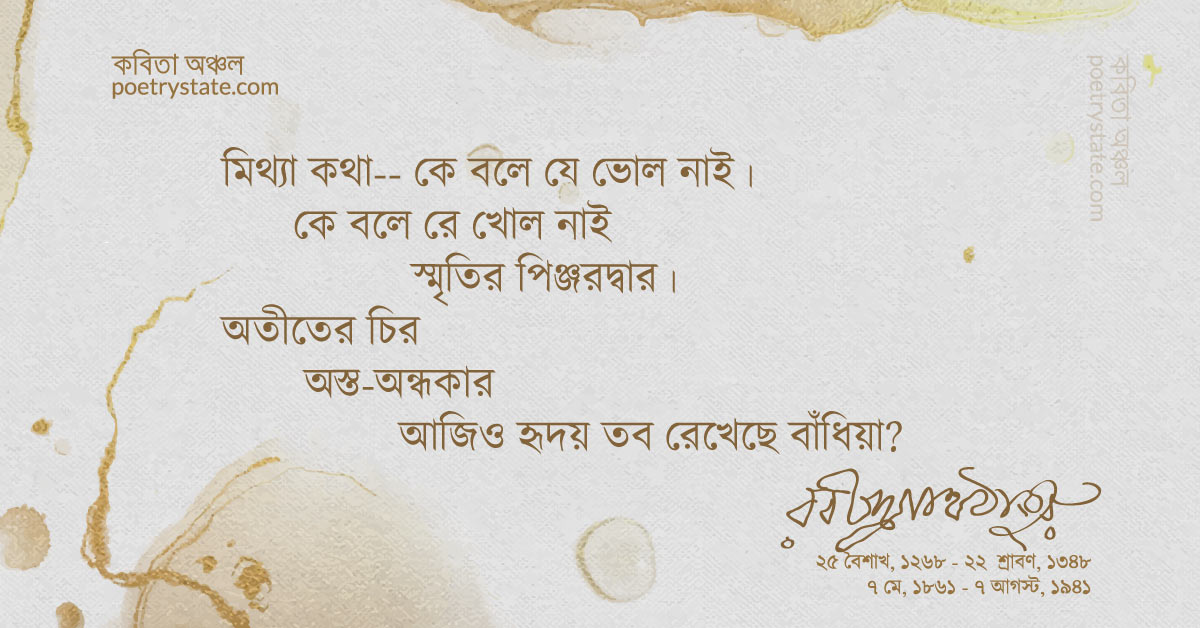 কবিতা অঞ্চল
poetrystate.com
কবিতা অঞ্চল
poetrystate.com
মিথ্যা কথা-- কে বলে যে ভোল নাই।
কে বলে রে খোল নাই
স্মৃতির পিঞ্জরদ্বার।
অতীতের চির
অস্ত-অন্ধকার
আজিও হৃদয় তব রেখেছে বাঁধিয়া?
রবীন্দ্রনাথ ঠাকুর
২৫ বৈশাখ, ১২৬৮ - ২২ শ্রাবণ, ১৩৪৮
৭ মে, ১৮৬১ - ৭ আগস্ট, ১৯৪১